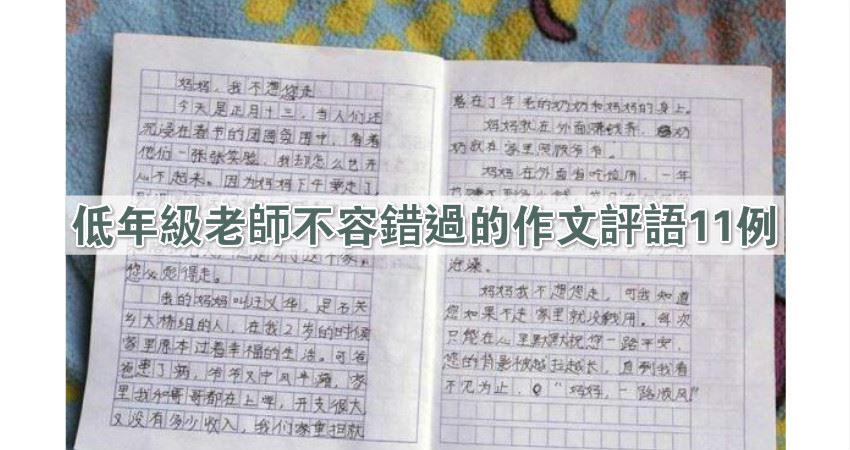 妈妈，我不想您走
今天是正月十三，当人们还
沉浸在春节的团圆氛围中，看着
他们一张张笑脸，我却怎么也开
心不起来。因为妈妈下午要走了
低年級老師不容錯過的作文評語11例
您必须得走。
我的妈妈叫汪义华，是石关
乡大桥组的人，在我2岁的时候
家里原本过着幸福的生活。可爸
爸患了病，爷爷又中风半瘫，家
里我和哥哥都在上学，开支很大
又没有多少收入，我们家重担就
落在了年老的奶奶和妈妈的身上。
妈妈就在外面赚钱养，奶
奶就在家里照顾爷爷。
妈妈在外面省吃俭用，一年
泡澡。
妈妈我不想您走，可我知道
您如果不走家里就没钱用。每次
只能在心里默默祝您一路平安，
您的背影被越拉越长，直到我看
不见为止。“妈妈，一路顺风！”